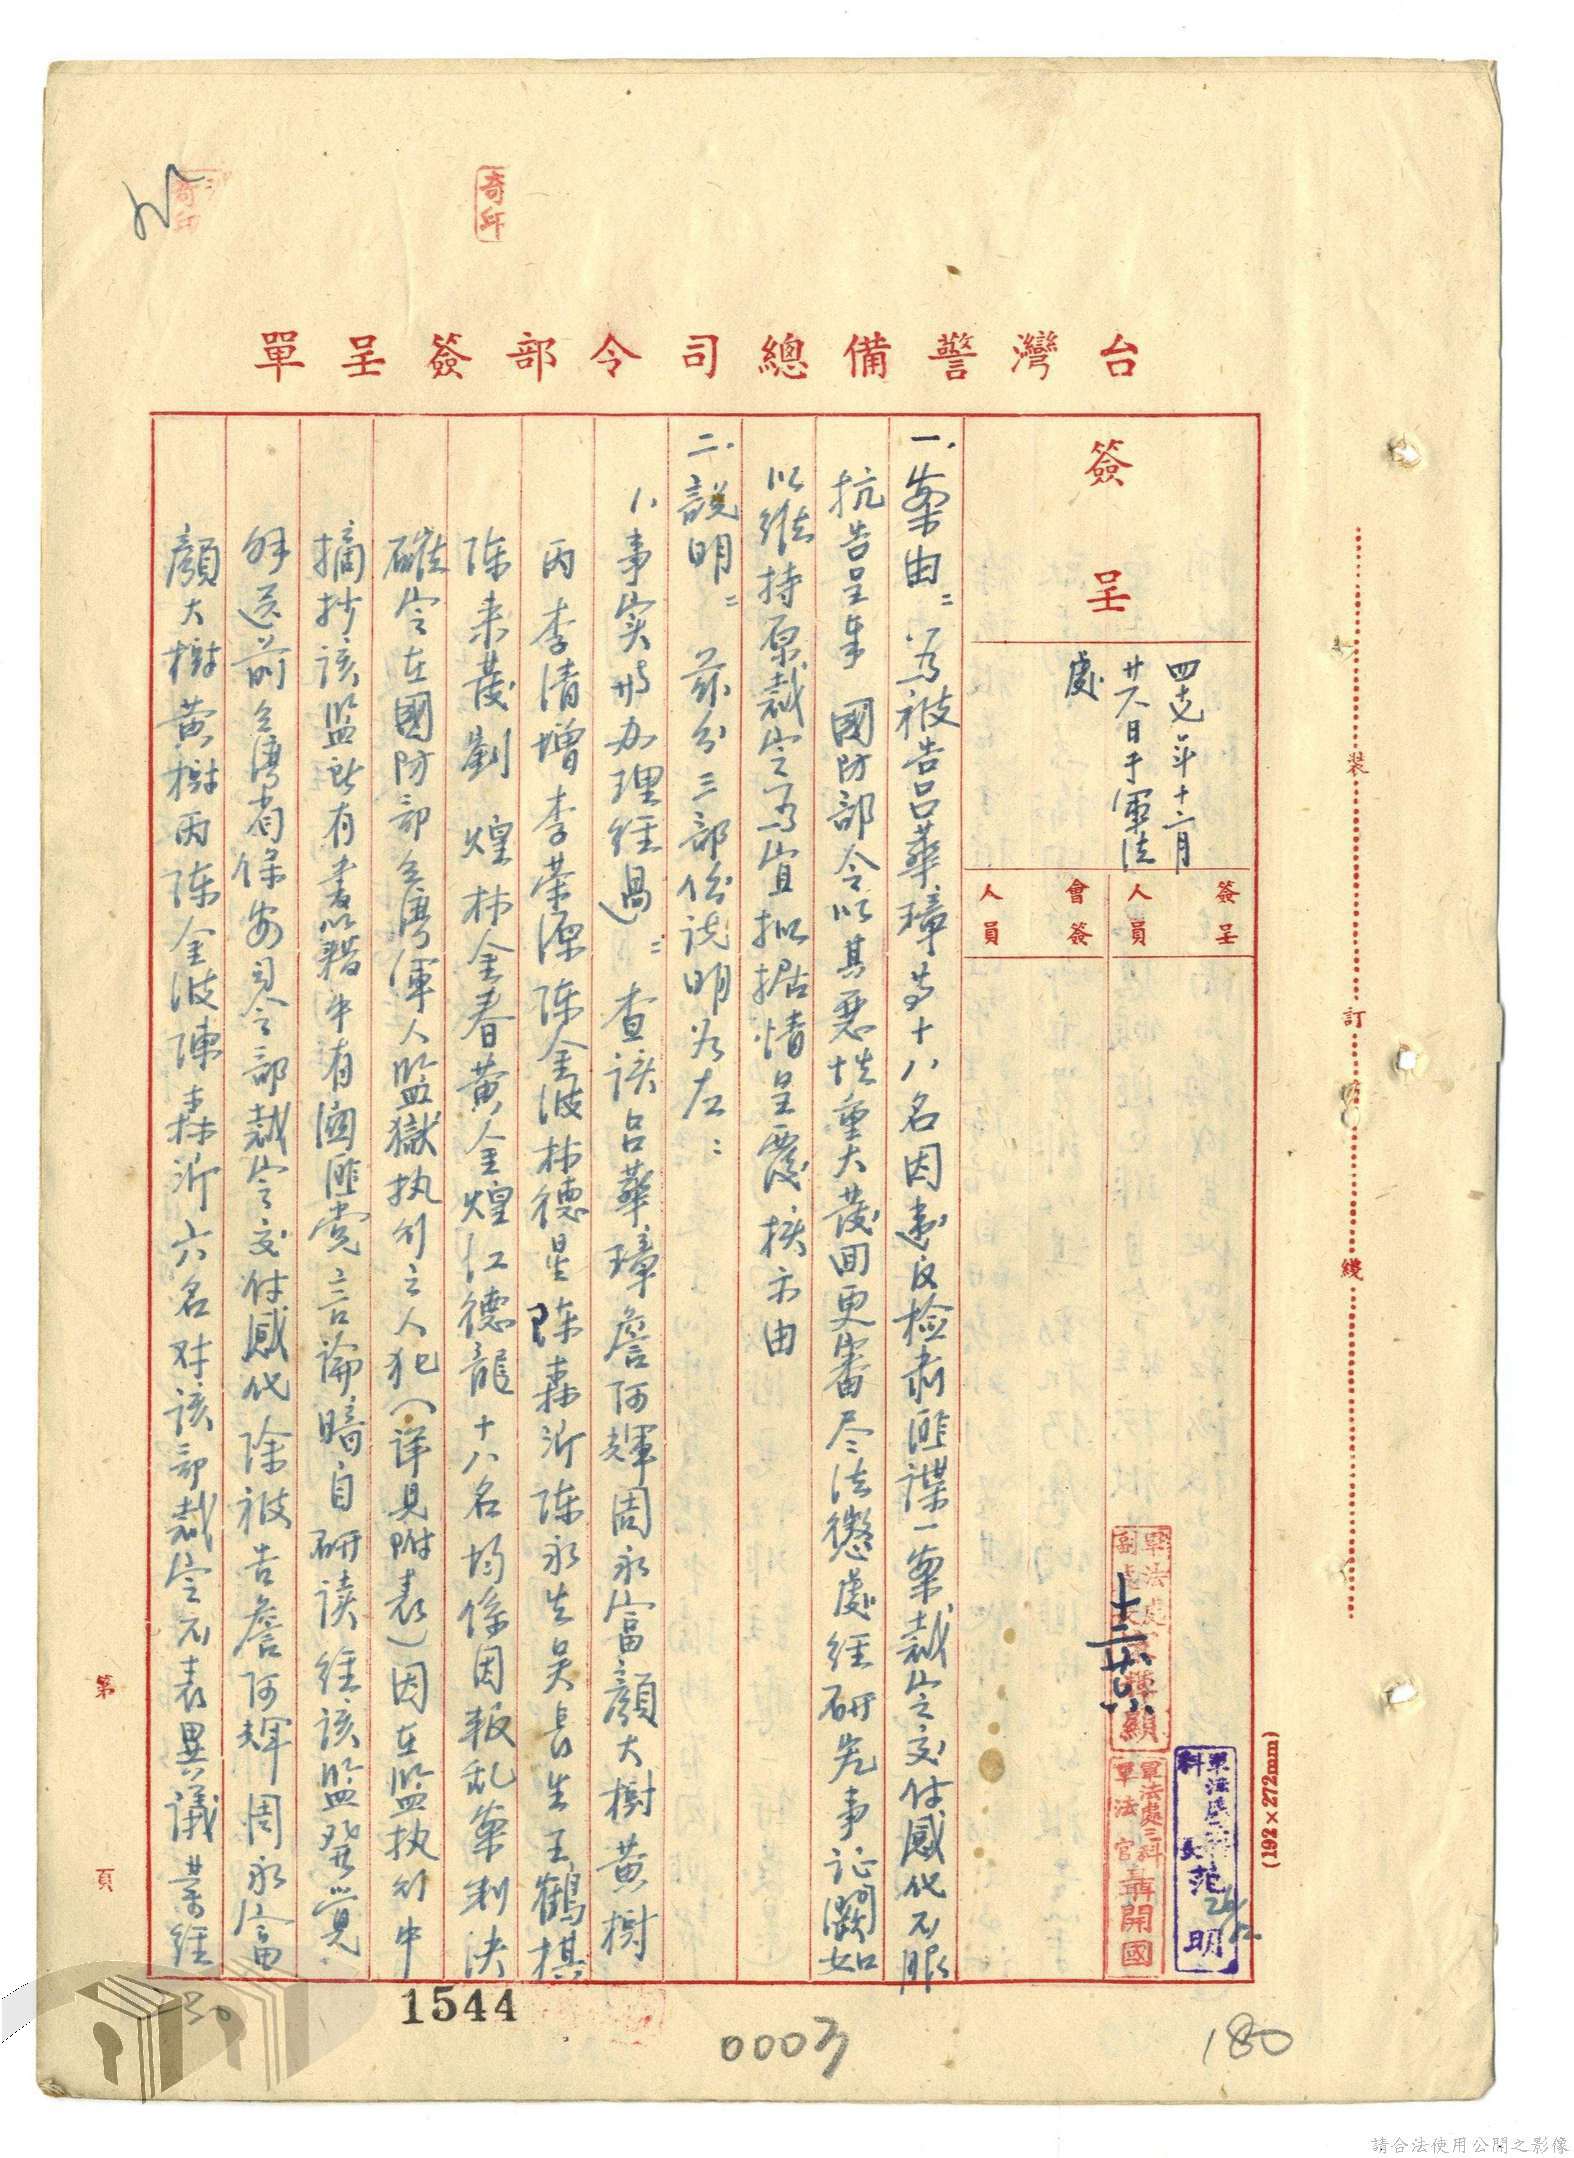 台灣警備總司令部簽呈單
簽呈
四七年十二月
廿六日于軍法
處
簽呈
人員
會簽
人員
一.案由：為被告呂華璋等十八名因違反檢肅匪諜一案裁定交付感化不服
抗告呈奉 國防部令以其惡性重大發回更審尽法懲處經研究事証闕如
以維持原裁定為宜拟据情呈覆核示由
二.説明：茲分三部份説明為左：
1、事实與办理經過：查該呂華璋詹阿輝周永富顏大樹黃樹
丙李清增李荣源陈金波林德星陈森沂陈永生吴長生王鶴棋
陈来發劉煌林金春黃金煌江德龍十八名均係因報乱案判决
確定在國防部台湾軍人監獄执行之人犯（详見附表）因在監执行中
摘抄該監所有書籍中有關匪党言論暗自研读經該監發覺
解送前台湾省保安司令部裁定交付感化除被告詹阿輝周永富
顏大樹黃樹丙陈金波陳森沂六名对該部裁定无表異議業經
裝
訂
綫
第 頁
(192×272mm)
軍法處三科
軍法官
聶開國
科長 范 明
奇邱
1544
0003
180
請合法使用公開之影像